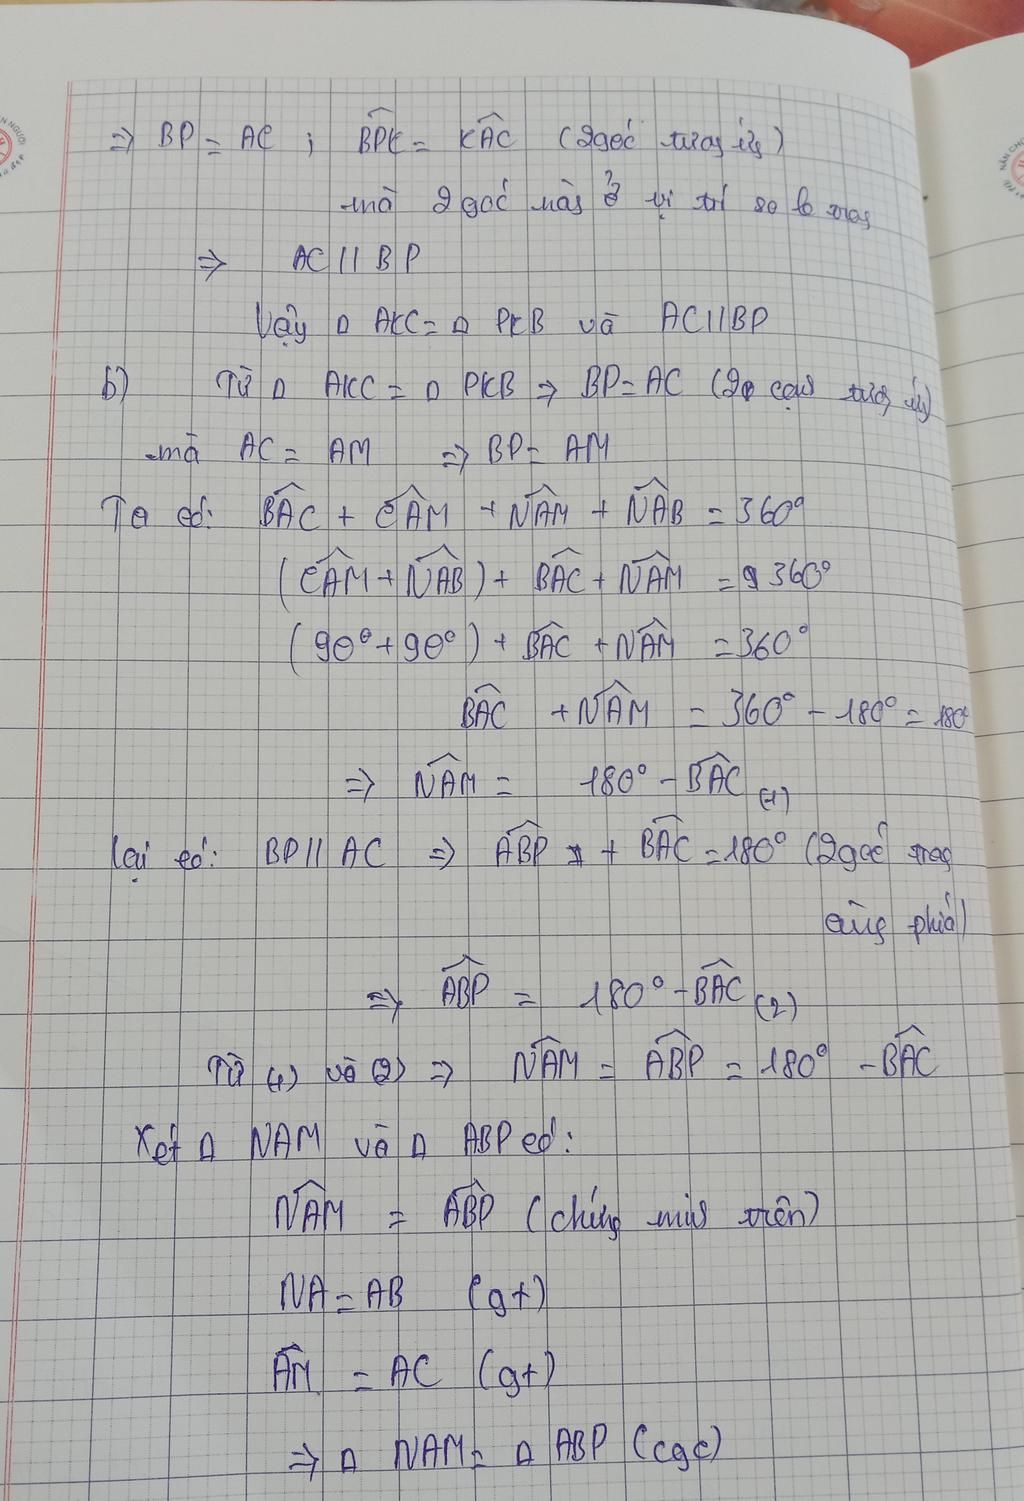 ⇒ BP = AC ; BPK̂ = KAĈ (2 góc tương ứng)
mà 2 góc này ở vị trí so le trong
⇒ AC // BP
Vậy Δ AKC = Δ PKB và AC // BP
b) Từ Δ AKC = Δ PKB ⇒ BP = AC (2 cạnh tương ứng)
mà AC = AM ⇒ BP = AM
Ta có: BÂC + CÂM + NÂM + NÂB = 360°
(CÂM + NÂB) + BÂC + NÂM = 360°
(90° + 90°) + BÂC + NÂM = 360°
BÂC + NÂM = 360° - 180° = 180°
⇒ NÂM = 180° - BÂC (1)
Lại có: BP // AC ⇒ ABP̂ + BÂC = 180° (2 góc trong
cùng phía)
⇒ ABP̂ = 180° - BÂC (2)
Từ (1) và (2) ⇒ NÂM = ABP̂ = 180° - BÂC
Xét Δ NAM và Δ ABP có:
NÂM = ABP̂ (chứng minh trên)
NA = AB (gt)
AM = AC (gt)
⇒ Δ NAM = Δ ABP (cgc)